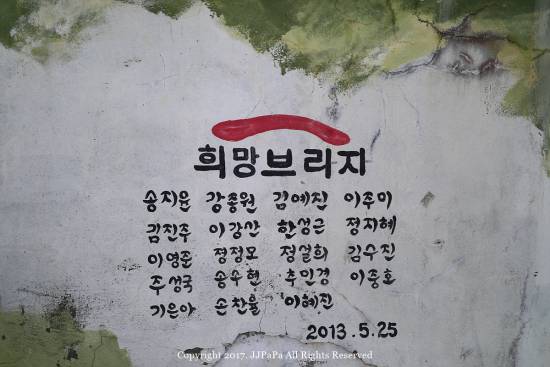 희망브리지
송지윤 강종원 김예진 이주미
김진주 이강산 한성근 정지혜
이영준 정정모 정설희 김수진
주성국 송수현 추민경 이중호
기은아 손찬율 이혜진
2013.5.25
Copyright 2017. JJPaPa All Rights Reserved